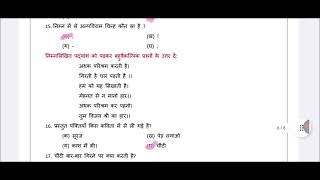 15. निम्न में से अल्पविराम चिन्ह कौन सा है ?
(ख) !
(ग) -
(घ) ;
निम्नलिखित पद्यांश को पढ़कर बहुवैकल्पिक प्रश्नों के उत्तर दें:
अथक परिश्रम करती है।
गिरती है चल पड़ती है ।।
हम को यह सिखाती है।
मेहनत से न मानो हार।।
अथक परिश्रम कर पहनो।
तुम विजय श्री का हार।।
16. प्रस्तुत पंक्तियाँ किस कविता से ली गई है?
(क) सूरज
(ख) पेड़ लगाओ
(ग) काश मैं भी।
चींटी
17. चींटी बार-बार गिरने पर क्या करती है?